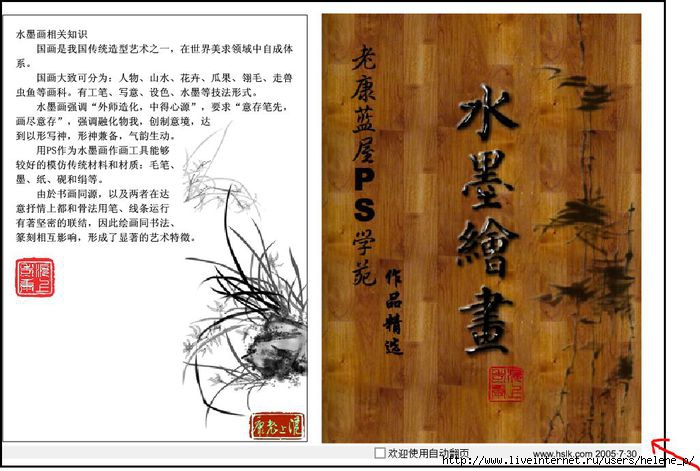 水墨画相关知识
国画是我国传统造型艺术之一，在世界美求领域中自成体
系。
国画大致可分为：人物、山水、花卉、瓜果、翎毛、走兽
虫鱼等画科。有工笔、写意、设色、水墨等技法形式。
水墨画强调“外师造化，中得心源”，要求“意存笔先，
画尽意存”，强调融化物我，创制意境，达
到以形写神，形神兼备，气韵生动。
用PS作为水墨画作画工具能够
较好的模仿传统材料和材质：毛笔、
墨、纸、砚和绢等。
由於书画同源，以及两者在达
意抒情上都和骨法用笔、线条运行
有著坚密的联结，因此绘画同书法、
篆刻相互影响，形成了显著的艺术特徵。
康老上滬
老康蓝屋PS学苑
作品精选
水墨繪畫
欢迎使用自动翻页
www.hslk.com 2005·7·30
http://www.liveinternet.ru/users/helene_p/